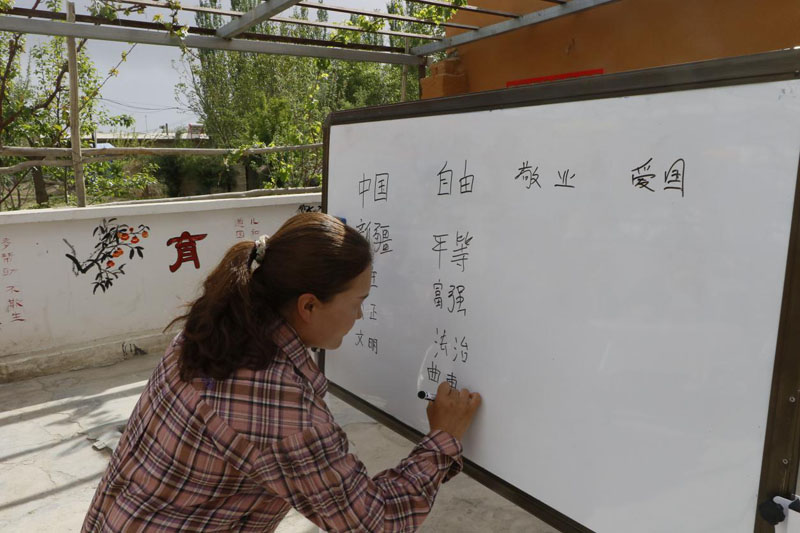 中国 自由 敬业 爱国
新疆 平等
主 富强
正
文明 法治
曲
育